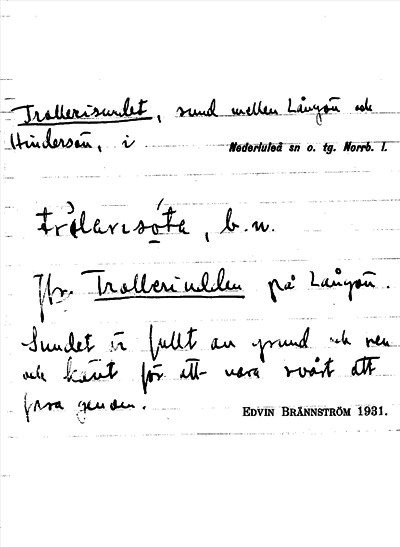 Trollerisundet, sund mellan Långön och
Hindersön, i Nederluleå sn o. tg. Norrb. l.
b.n.
Jfr Trolleriudden på Långön.
Sundet är fullt av grund och rev
och känt för att vara svårt att
fara genom.
EDVIN BRÄNNSTRÖM 1931.